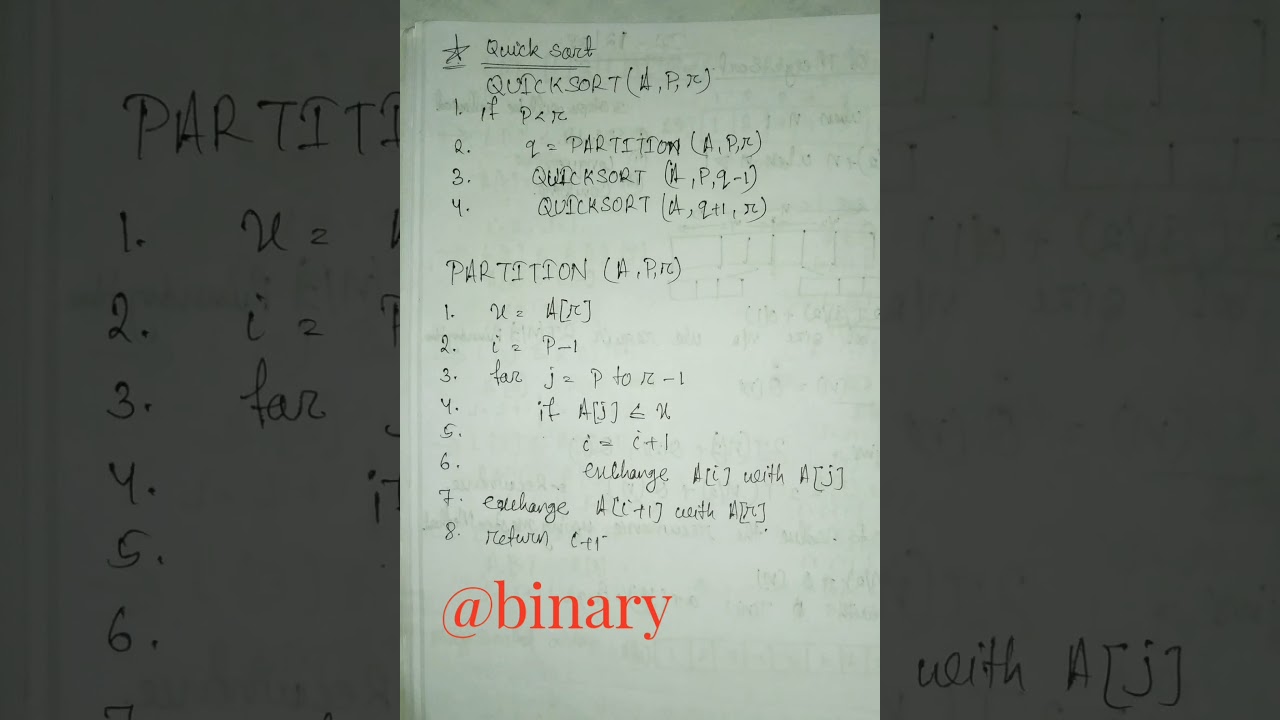 ☆ Quick sort
QUICKSORT (A, P, r)
1. if P < r
2. q = PARTITION (A, P, r)
3. QUICKSORT (A, P, q-1)
4. QUICKSORT (A, q+1, r)
PARTITION (A, P, r)
1. x = A[r]
2. i = P-1
3. for j = P to r-1
4. if A[j] ≤ x
5. i = i+1
6. exchange A[i] with A[j]
7. exchange A[i+1] with A[r]
8. return i+1
@binary